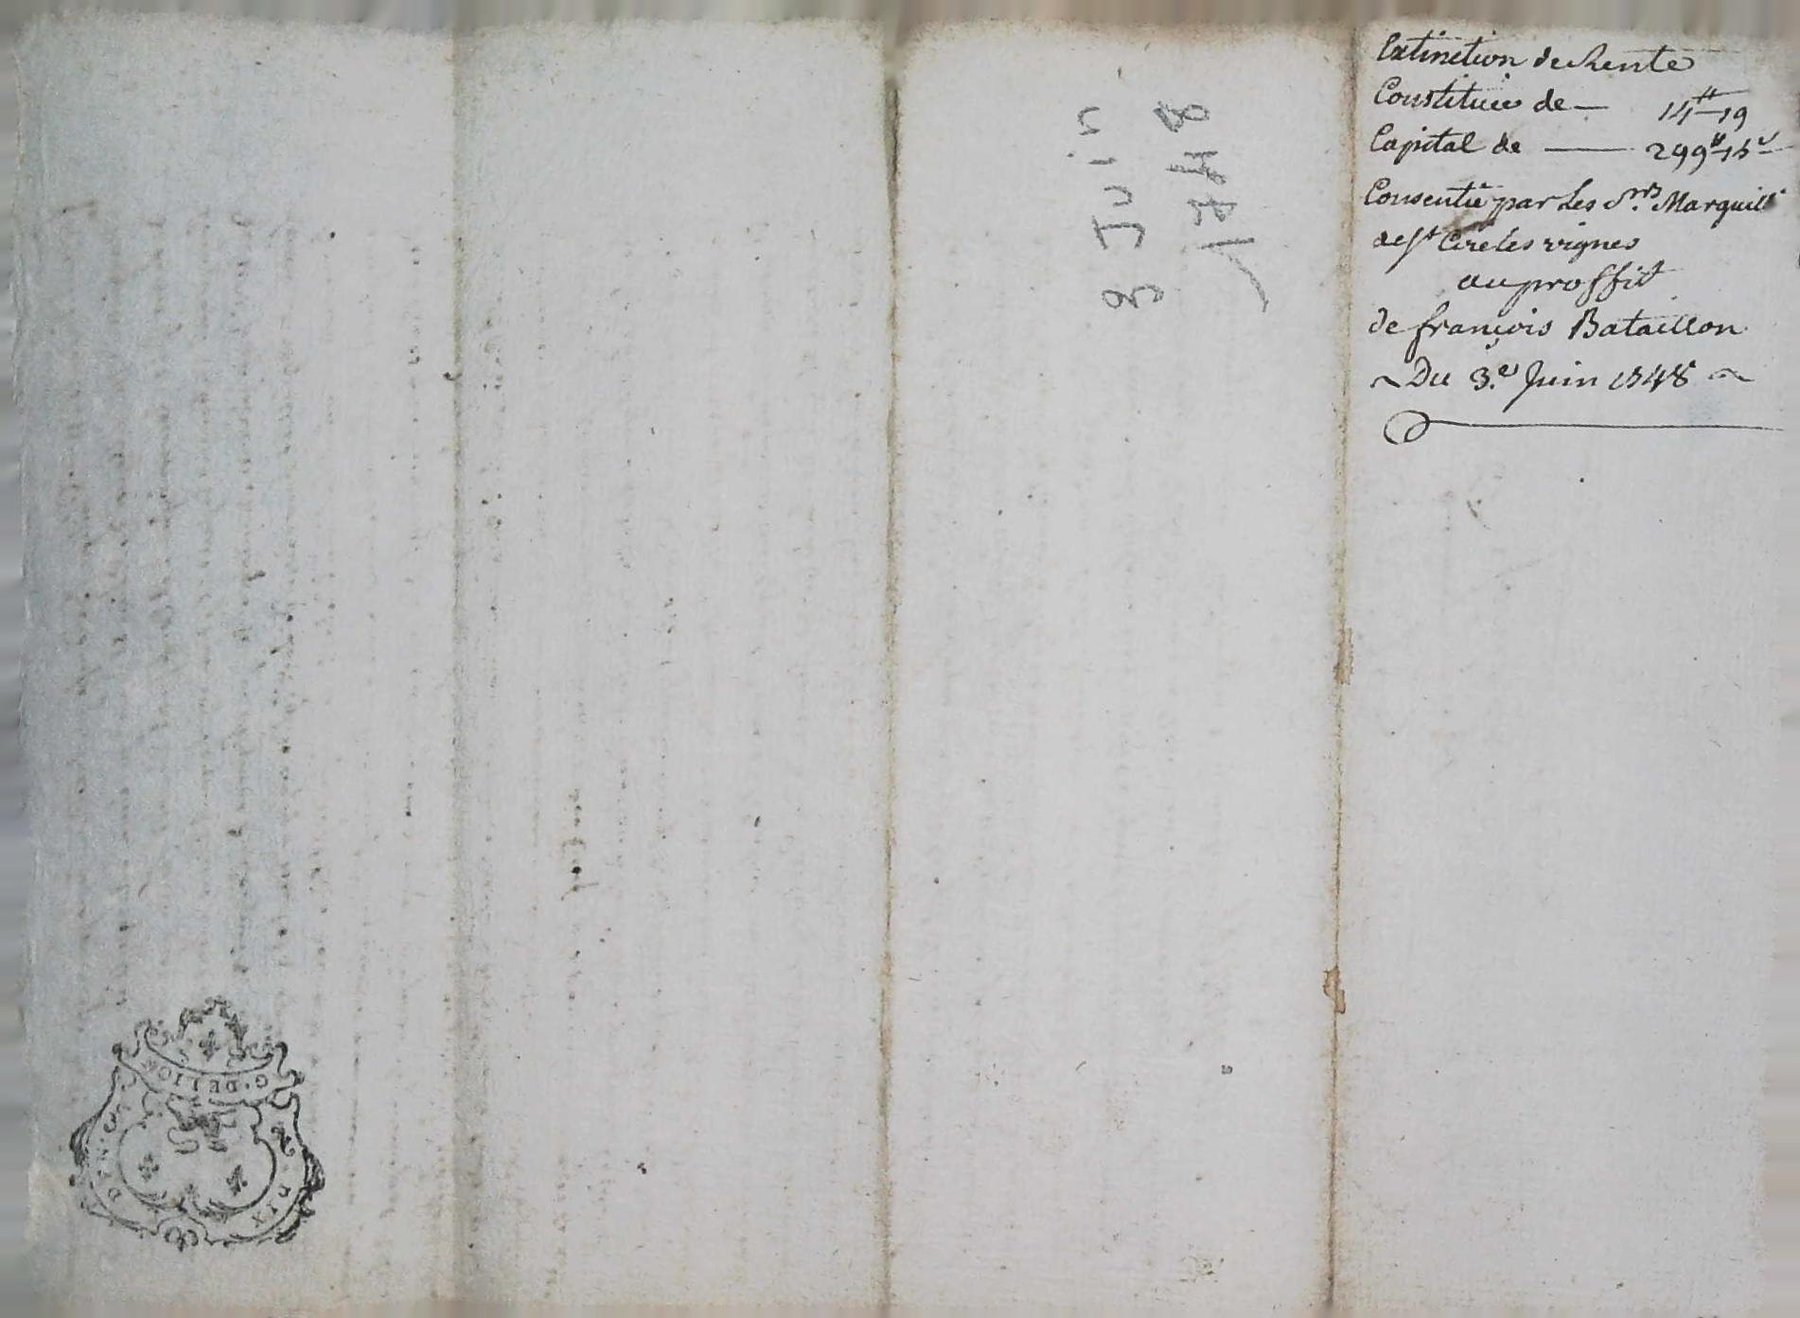 Extinction de Rente
Constituée de — 14tt 19
Capital de — 299tt 15s
Consentie par Les Srs. Marguill
de St Cire les vignes
au proffit
de françois Bataillon
~ Du 3.e Juin 1748 ~
3 Juin
1748
G. DE LION
DEN.
SIX